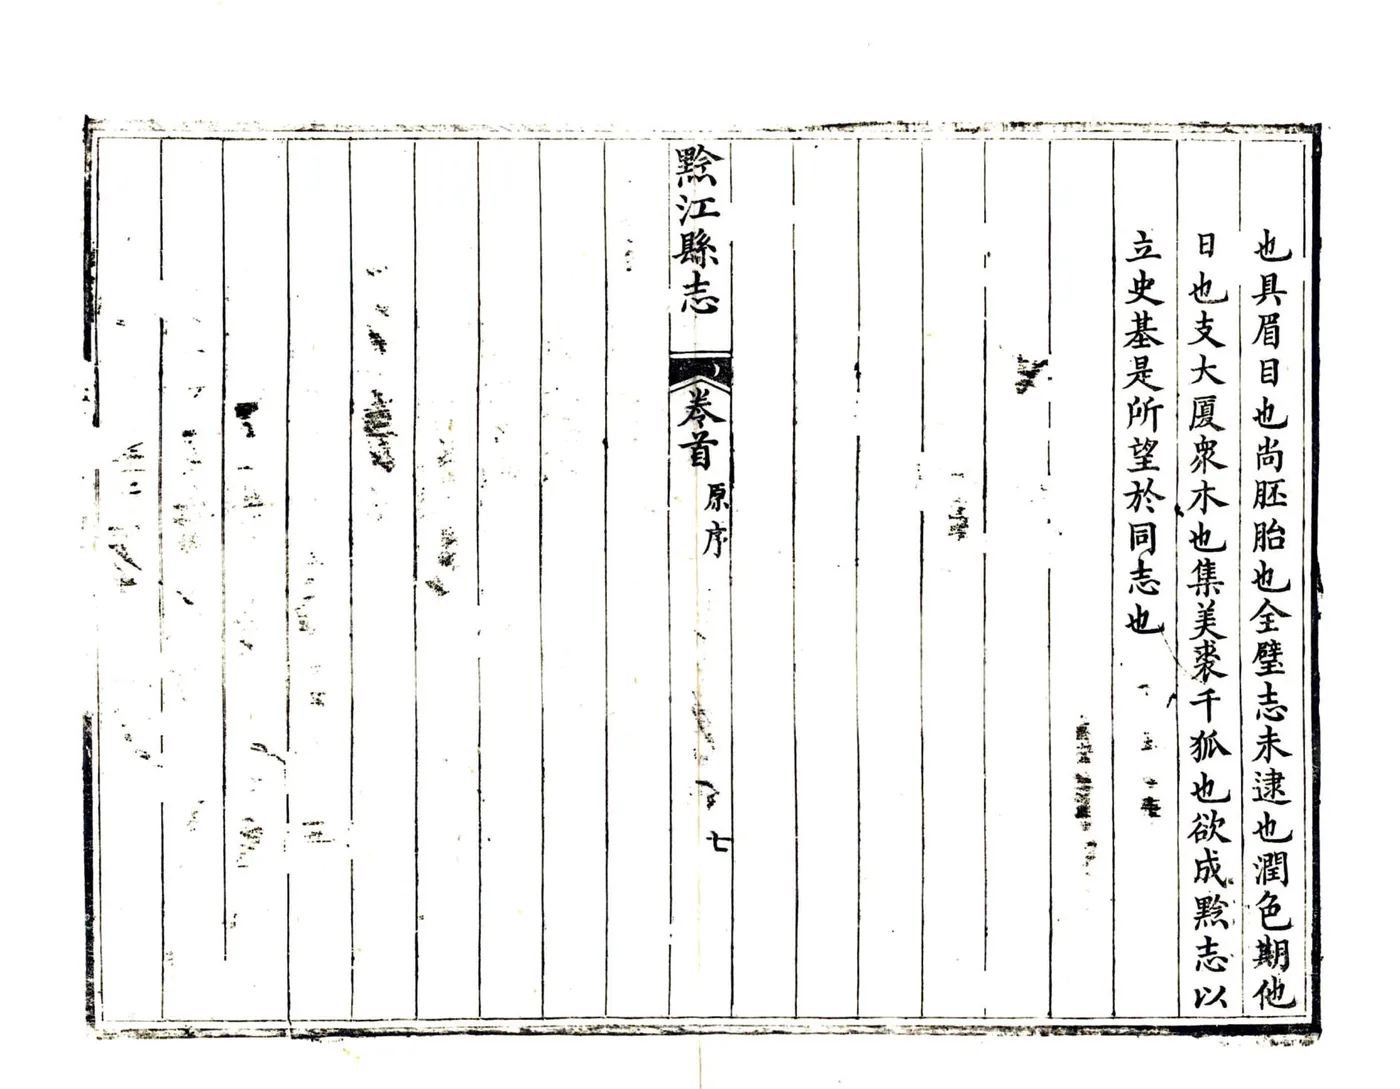 也具眉目也尚胚胎也全璧志未逮也潤色期他
日也支大厦衆木也集美裘千狐也欲成黔志以
立史基是所望於同志也
黔江縣志
卷首
原序
七